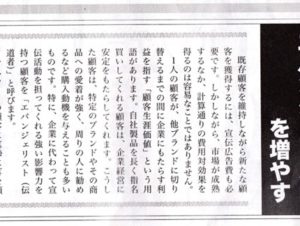 を増やす
既存顧客を維持しながら新たな顧
客を獲得するには、宣伝広告費も必
要です。しかしながら、市場が成熟
するなか、計算通りの費用対効果を
得るのは容易なことではありません。
1人の顧客が、他ブランドに切り
替えるまでの間に企業にもたらす利
益を指す「顧客生涯価値」という用
語があります。自社製品を長く指名
買いしてくれる顧客は、企業経営に
安定をもたらしてくれます。こうし
た顧客は、特定のブランドやその商
品への愛着が強く、周りの人に勧め
るなど購入動機を与えることも多い
ものです。特に、企業に代わって宣
伝活動を担ってくれる強い影響力を
持つ顧客を「エバンジェリスト（伝
道者）」と呼びます。